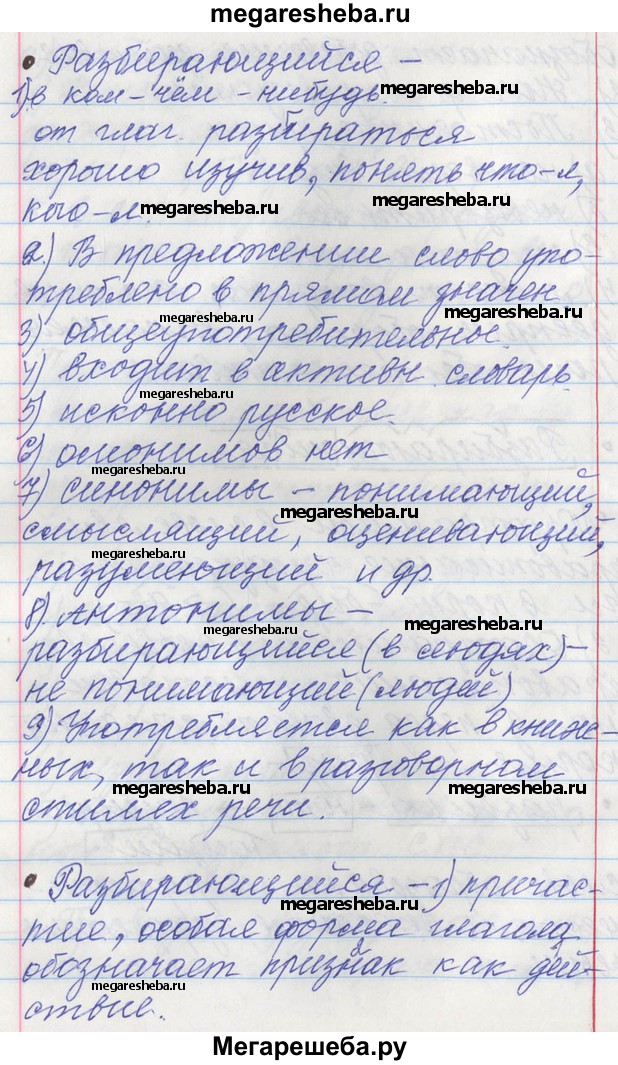 megaresheba.ru
• Разбирающийся –
1) в ком-чём-нибудь.
от глаг. разбираться
хорошо изучив, понять что-л,
кого-л. megaresheba.ru
megaresheba.ru
megaresheba.ru
2.) В предложении слово упо-
треблено в прямом значен
megaresheba.ru megaresheba.ru
3) общеупотребительные.
4) входит в активн. словарь.
megaresheba.ru
5) исконно русское.
6) омонимов нет
megaresheba.ru
7) синонимы – понимающий,
megaresheba.ru
смыслящий, оценивающий,
megaresheba.ru
разумеющий и др.
8). Антонимы –
megaresheba.ru megaresheba.ru
разбирающийся (в людях) –
не понимающий (людей)
9) Употребляется как в книж-
ных, так и в разговорном
megaresheba.ru megaresheba.ru
стилях речи.
• Разбирающийся – 1) причас-
megaresheba.ru
тие, особая форма глагола,
megaresheba.ru
обозначает признак как дей-
ствие.
megaresheba.ru
Мегарешеба.ру